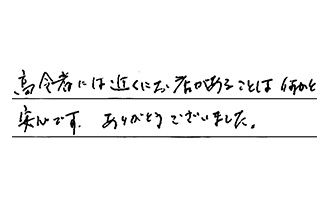 高令者には近くにお店があることは何かと
安心です。ありがとうございました。